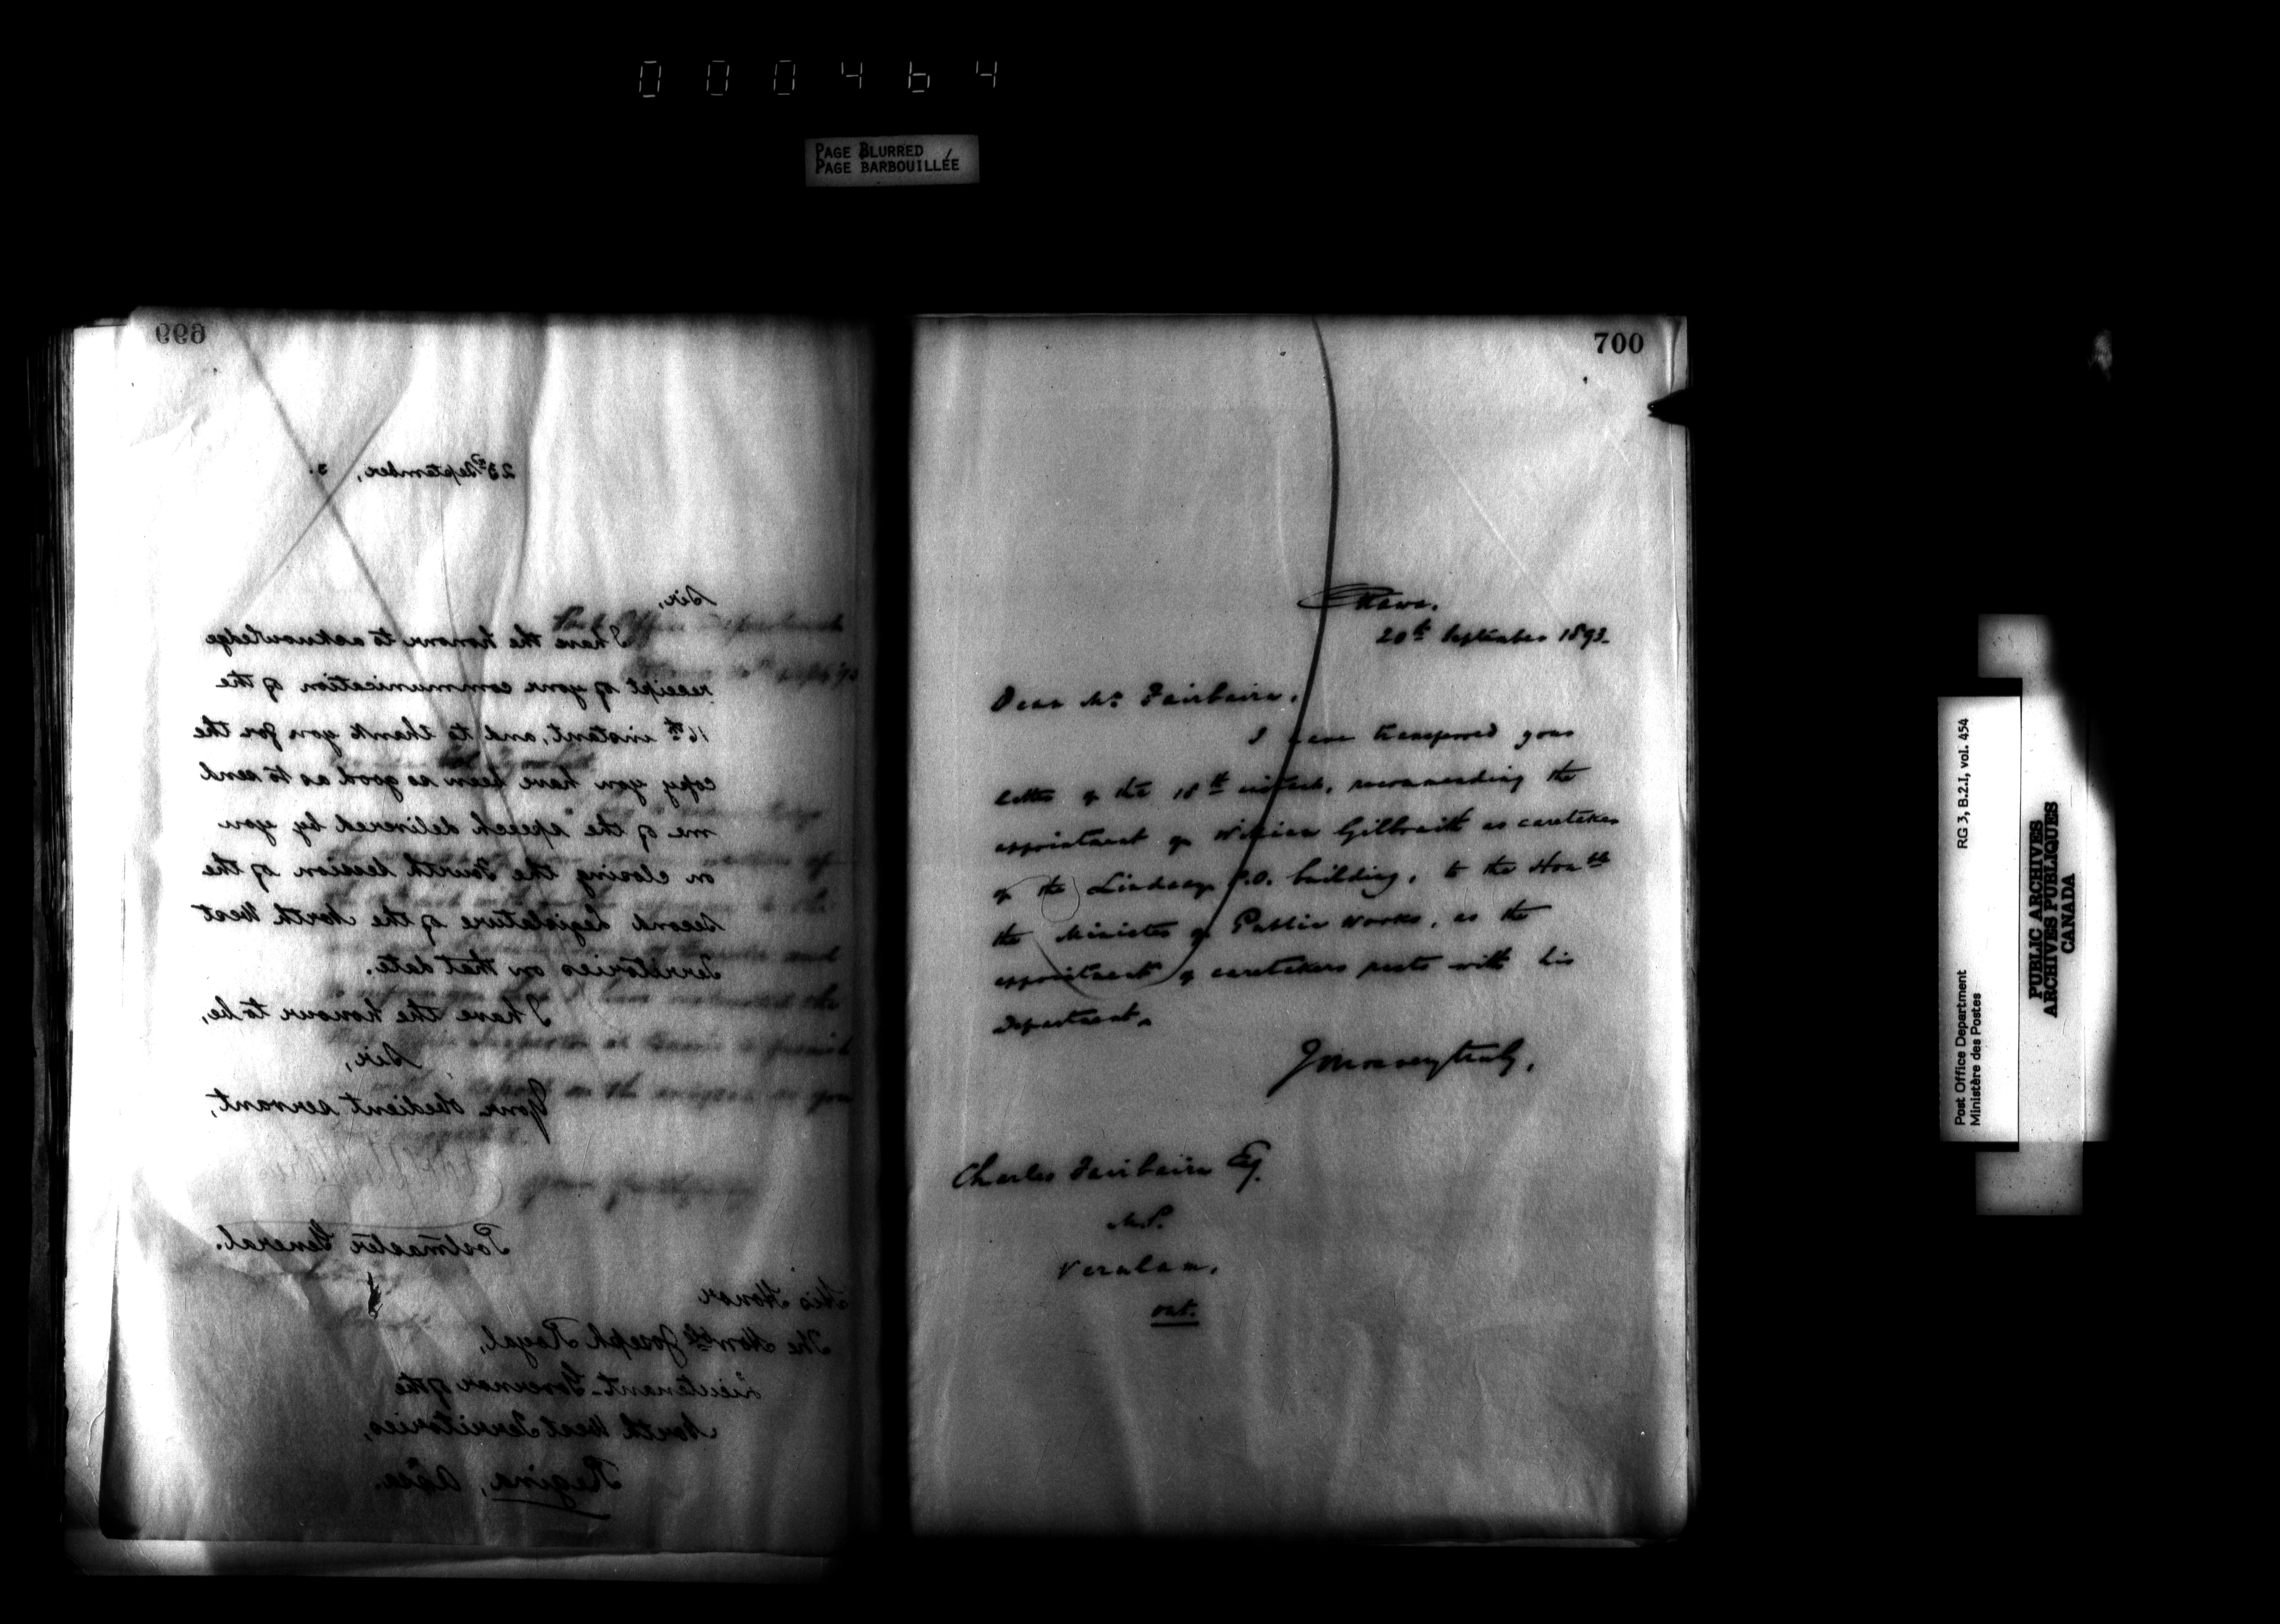 000464
PAGE BLURRED
PAGE BARBOUILLÉE
699
23rd September, 3.
Sir,
I have the honour to acknowledge
receipt of your communication of the
16th instant, and to thank you for the
copy you have been so good as to send
me of the speech delivered by you
on closing the Fourth Session of the
Second Legislature of the North West
Territories on that date.
I have the honour to be,
Sir,
Your obedient servant,
Postmaster General.
His Honor
The Honble Joseph Royal,
Lieutenant-Governor of the
North West Territories,
Regina, Assa.
700
Ottawa.
20th September 1893.
Dear Mr Fairbairn,
I have transferred your
letter of the 18th instant, recommending the
appointment of William Gilbraith as caretaker
of the Lindsay P.O. building, to the Honble
the Minister of Public Works, as the
appointment of caretakers rests with his
Department.
Yours very truly,
Charles Fairbairn Esq.
M.P.
Verulam,
Ont.
Post Office Department
Ministère des Postes
RG 3, B.2.I, vol. 454
PUBLIC ARCHIVES
ARCHIVES PUBLIQUES
CANADA